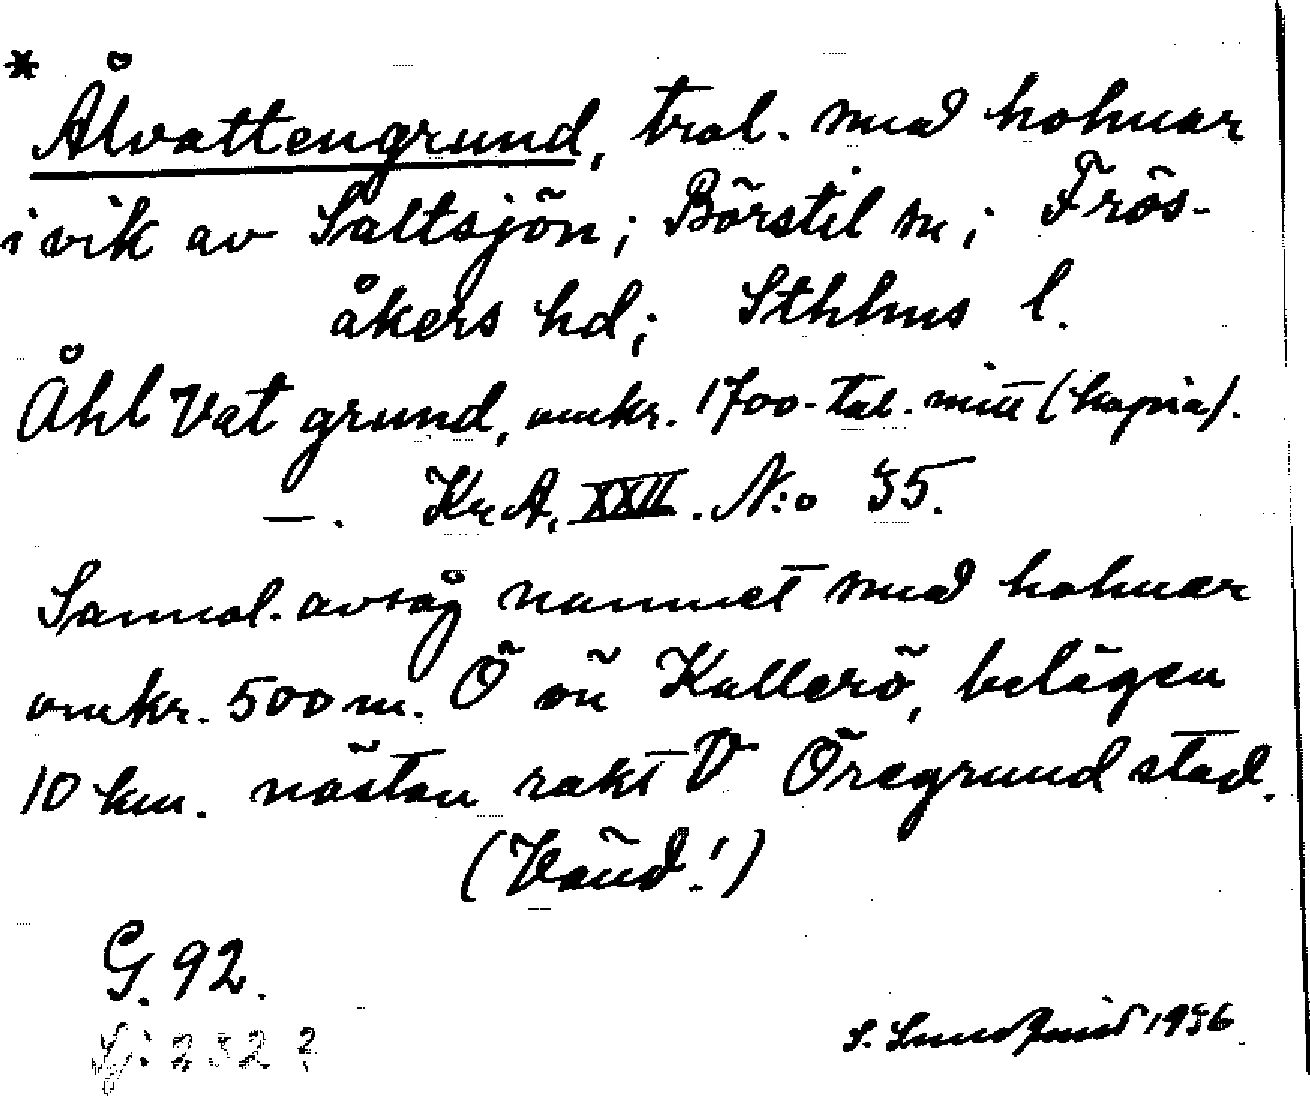 * Ålvattengrund, trol. med holmar
i vik av Saltsjön; Börstil sn; Frös-
åkers hd; Sthlms l.
Åhl Vat grund, omkr. 1700-tal. mitt (kopia).
—. KrA, XXII. N:o 35.
Sannol. avsåg namnet med holmar
omkr. 500 m. Ö on Kallerö, belägen
10 km. nästan rakt V Öregrund stad.
(Vänd!)
G. 92.
S. Lundquist 1936